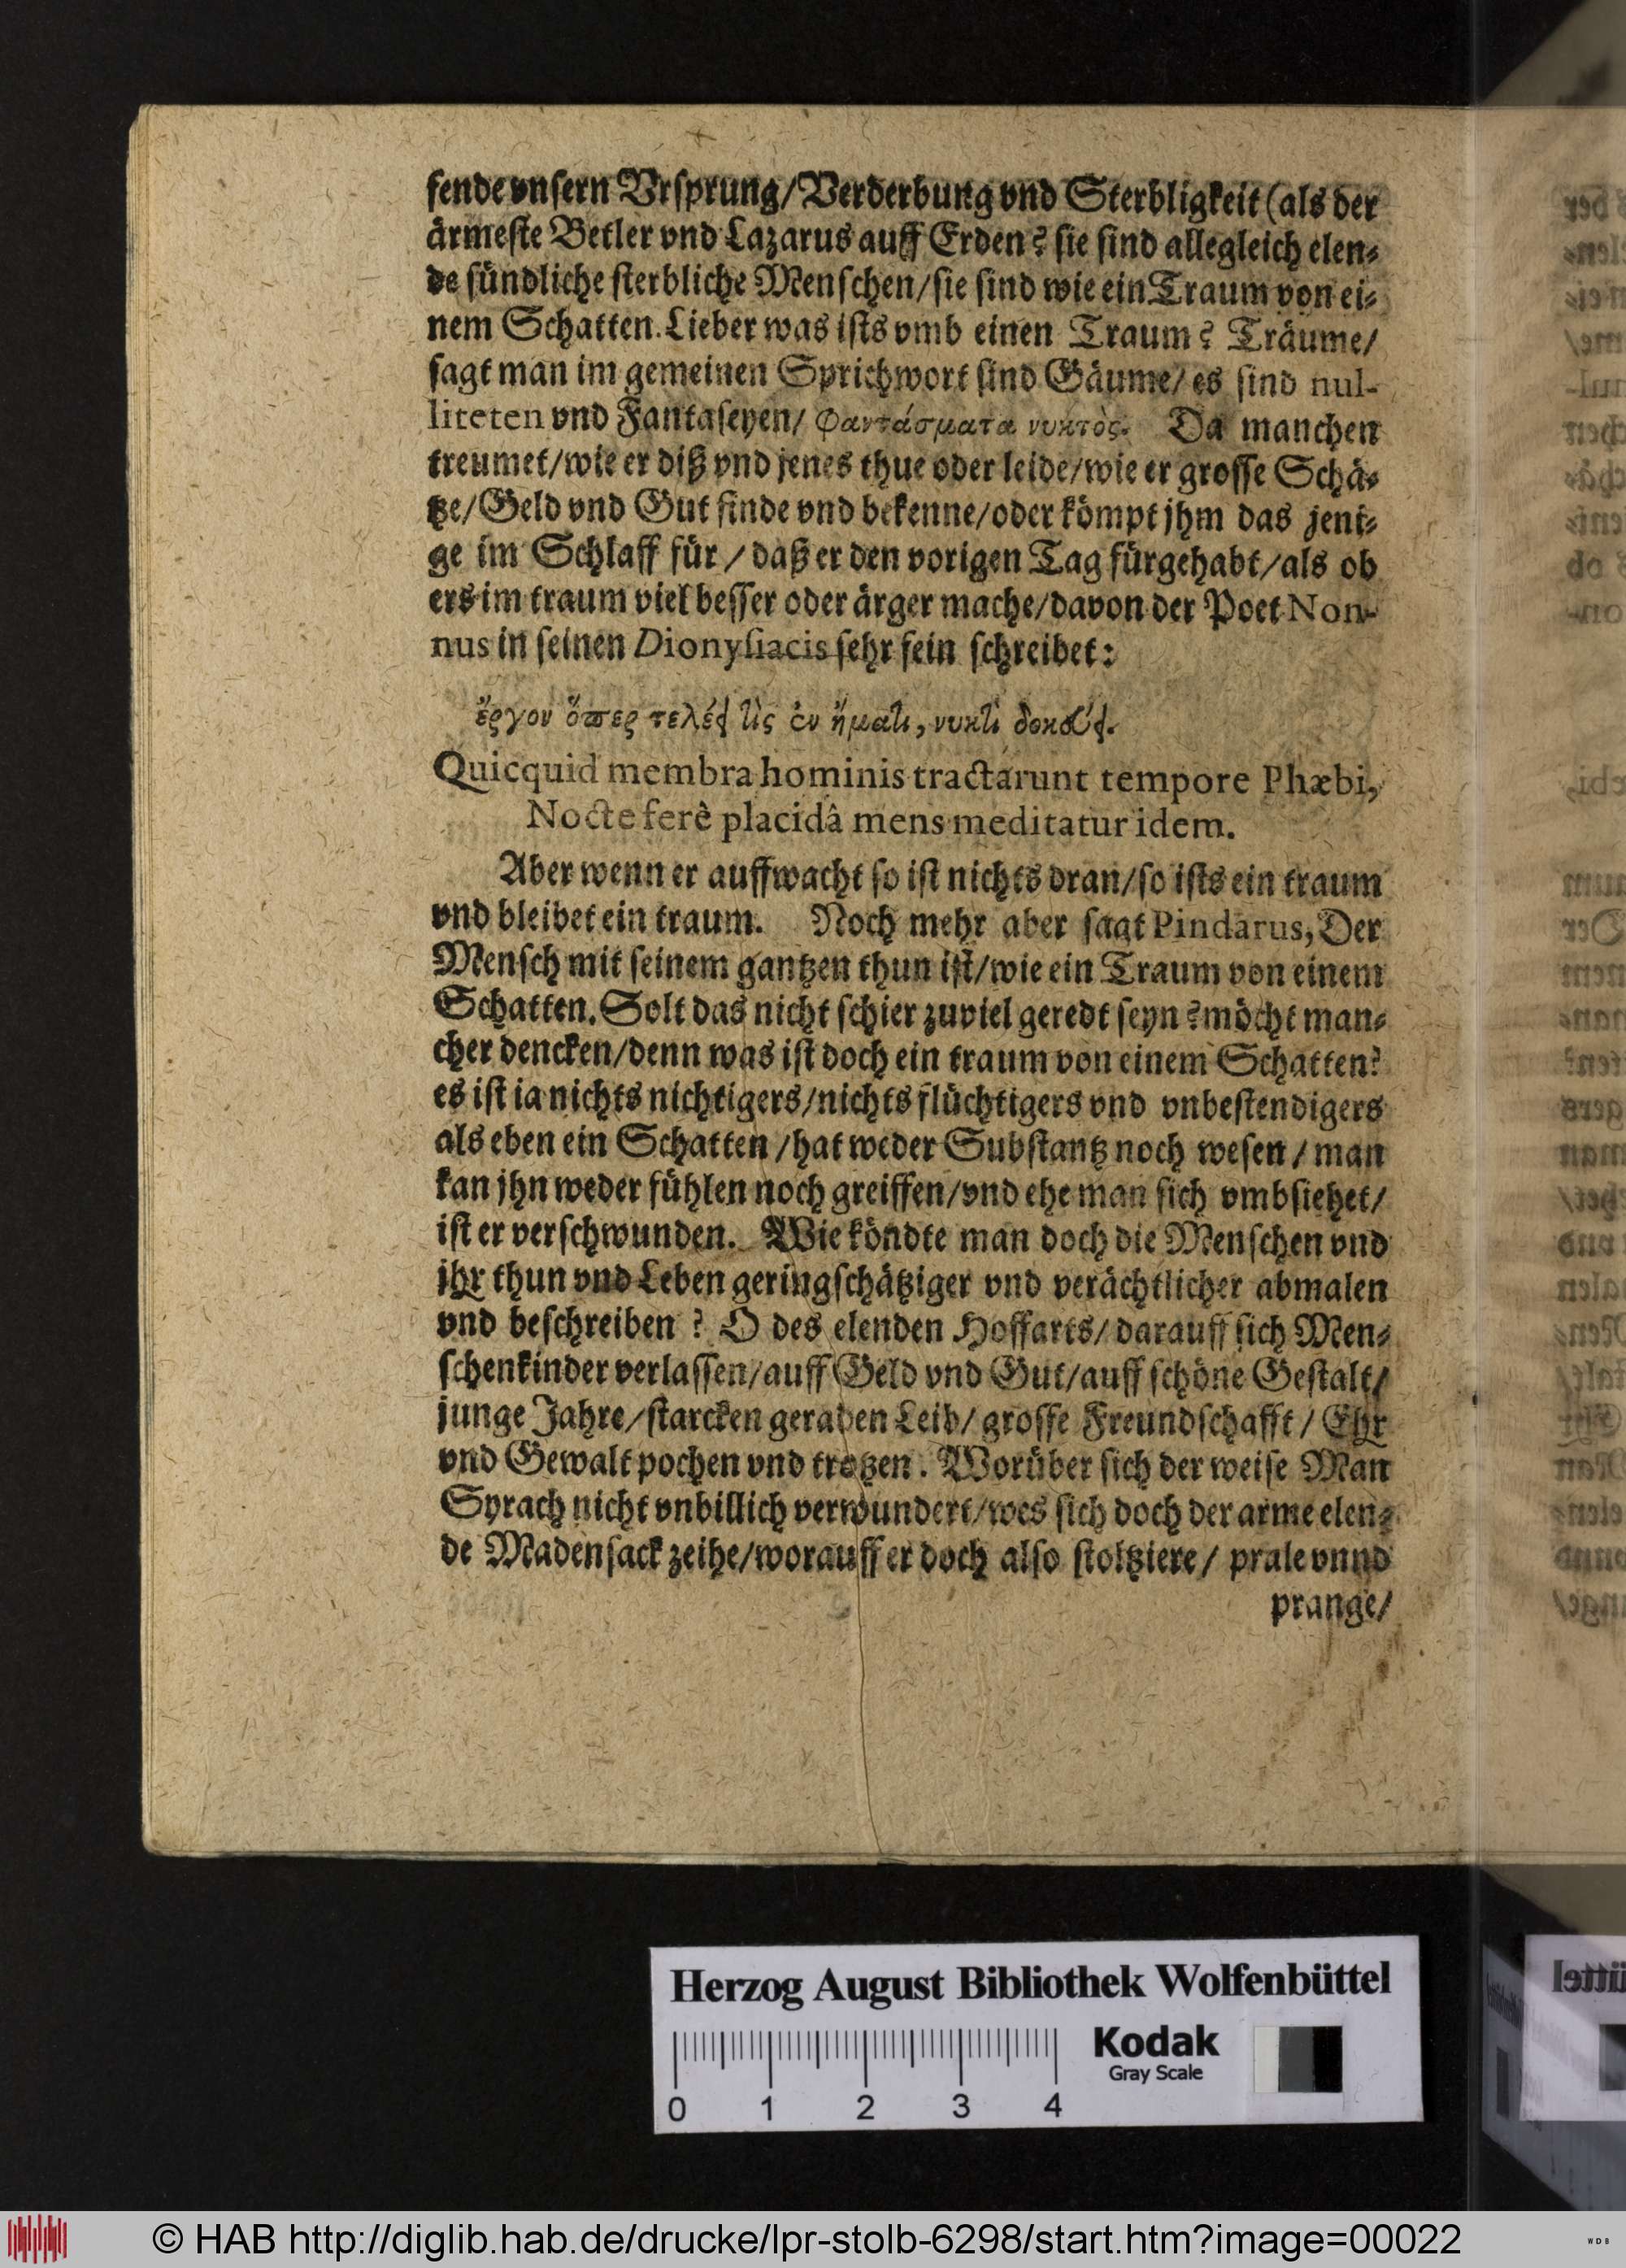 sende vnsern Vrsprung/Verderbung vnd Sterbligkeit (als der
ärmeste Betler vnd Lazarus auff Erden? sie sind allegleich elen-
de sündliche sterbliche Menschen/sie sind wie ein Traum von ei-
nem Schatten. Lieber was ists vmb einen Traum? Träume/
sagt man im gemeinen Sprichwort sind Gäume/ es sind nul-
liteten vnd Fantaseyen/ φαντάσματα νυκτὸς. Da manchen
treumet/wie er diß vnd jenes thue oder leide/wie er grosse Schä-
tze/Geld vnd Gut finde vnd bekenne/oder kömpt jhm das jeni-
ge im Schlaff für / daß er den vorigen Tag fürgehabt/als ob
ers im traum viel besser oder ärger mache/davon der Poet Non-
nus in seinen Dionysiacis sehr fein schreibet:
ἔργον ὅπερ τελέει τὶς ἐν ἤματι, νυκτὶ δοκεύει.
Quicquid membra hominis tractarunt tempore Phæbi,
Nocte ferè placidâ mens meditatur idem.
Aber wenn er auffwacht so ist nichts dran/so ists ein traum
vnd bleibet ein traum. Noch mehr aber sagt Pindarus, Der
Mensch mit seinem gantzen thun ist/wie ein Traum von einem
Schatten. Solt das nicht schier zuviel geredt seyn? möcht man-
cher dencken/denn was ist doch ein traum von einem Schatten?
es ist ia nichts nichtigers/nichts flüchtigers vnd vnbestendigers
als eben ein Schatten /hat weder Substantz noch wesen / man
kan jhn weder fühlen noch greiffen/vnd ehe man sich vmbsiehet/
ist er verschwunden. Wie köndte man doch die Menschen vnd
jhr thun vnd Leben geringschätziger vnd verächtlicher abmalen
vnd beschreiben ? O des elenden Hoffarts/ darauff sich Men-
schenkinder verlassen/auff Geld vnd Gut/auff schöne Gestalt/
junge Jahre/starcken geraden Leib/ grosse Freundschafft / Ehr
vnd Gewalt pochen vnd trotzen. Worüber sich der weise Man
Syrach nicht vnbillich verwundert/wes sich doch der arme elen-
de Madensack zeihe/worauff er doch also stoltziere/ prale vnnd
prange/
Herzog August Bibliothek Wolfenbüttel
Kodak
Gray Scale
0 1 2 3 4
© HAB http://diglib.hab.de/drucke/lpr-stolb-6298/start.htm?image=00022
WDB